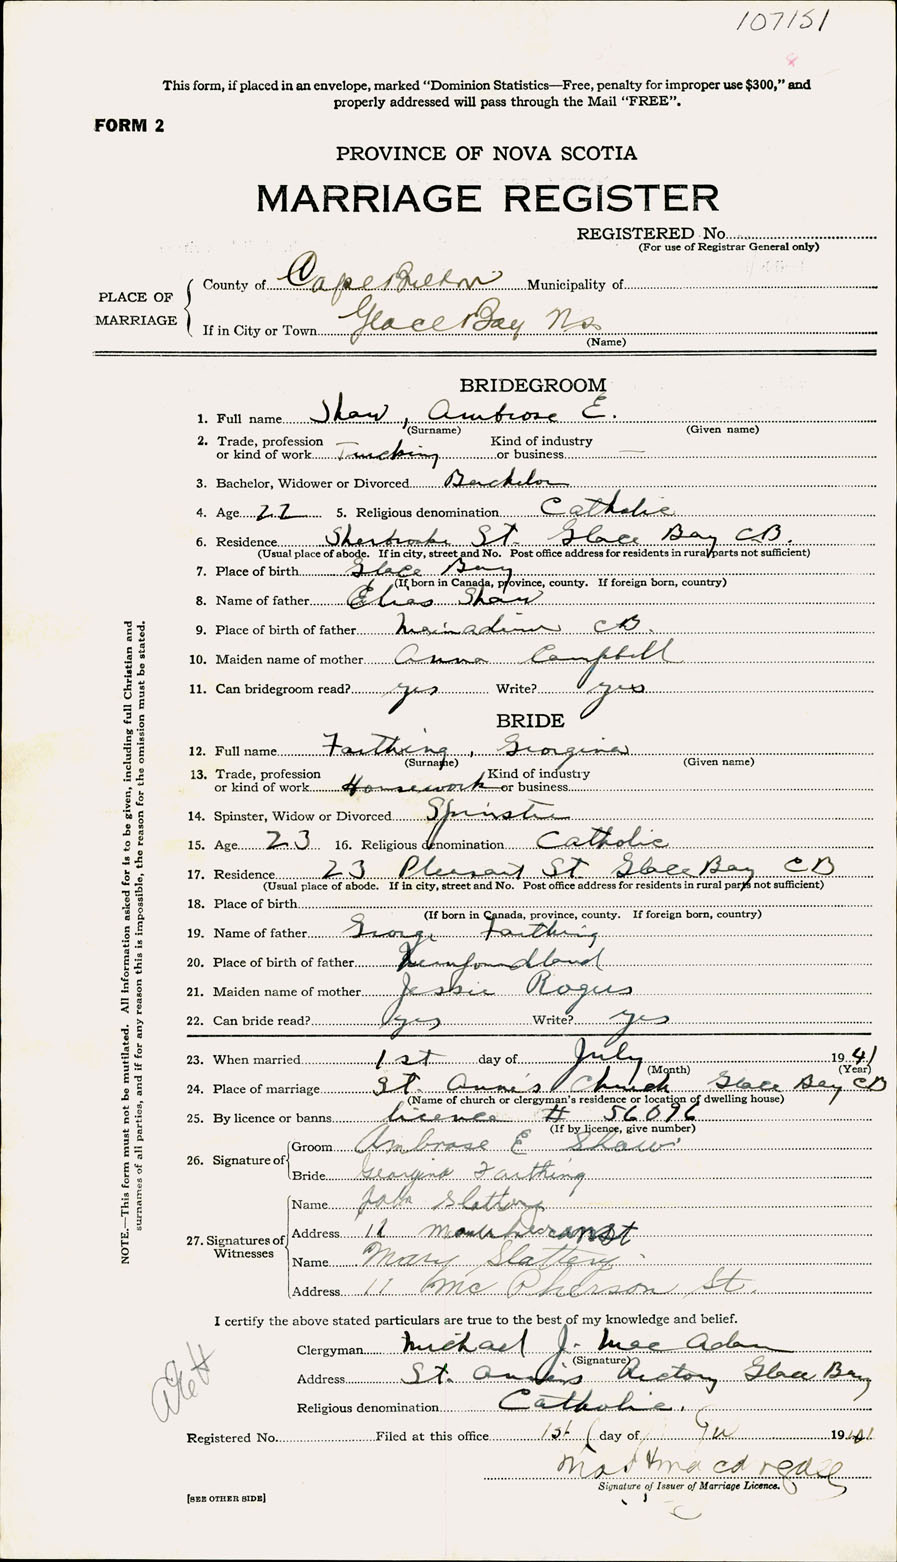 107151
This form, if placed in an envelope, marked “Dominion Statistics—Free, penalty for improper use $300,” and
properly addressed will pass through the Mail “FREE”.
FORM 2
PROVINCE OF NOVA SCOTIA
MARRIAGE REGISTER
REGISTERED No.
(For use of Registrar General only)
PLACE OF MARRIAGE
County of Cape Breton Municipality of
If in City or Town Glace Bay Ns
(Name)
BRIDEGROOM
1. Full name Shaw, Ambrose E.
(Surname) (Given name)
2. Trade, profession or kind of work Trucking Kind of industry or business —
3. Bachelor, Widower or Divorced Bachelor
4. Age 22 5. Religious denomination Catholic
6. Residence Sherbrooke St. Glace Bay CB.
(Usual place of abode. If in city, street and No. Post office address for residents in rural parts not sufficient)
7. Place of birth Glace Bay
(If born in Canada, province, county. If foreign born, country)
8. Name of father Elias Shaw
9. Place of birth of father CB.
10. Maiden name of mother Anna Campbell
11. Can bridegroom read? yes Write? yes
BRIDE
12. Full name Farthing, Georgina
(Surname) (Given name)
13. Trade, profession or kind of work Housework Kind of industry or business
14. Spinster, Widow or Divorced Spinster
15. Age 23 16. Religious denomination Catholic
17. Residence 23 Pleasant St Glace Bay CB
(Usual place of abode. If in city, street and No. Post office address for residents in rural parts not sufficient)
18. Place of birth
(If born in Canada, province, county. If foreign born, country)
19. Name of father George Farthing
20. Place of birth of father Newfoundland
21. Maiden name of mother Jessie Rogers
22. Can bride read? yes Write? yes
23. When married 1st day of July 1941
(Month) (Year)
24. Place of marriage St. Anne's Church Glace Bay CB
(Name of church or clergyman's residence or location of dwelling house)
25. By licence or banns licence # 56096
(If by licence, give number)
26. Signature of
Groom Ambrose E Shaw
Bride Georgina Farthing
27. Signatures of Witnesses
Name John Slattery
Address 11 st
Name Mary Slattery
Address 11 McPherson St.
I certify the above stated particulars are true to the best of my knowledge and belief.
Clergyman Michael J. MacAdam
(Signature)
Address St. Anne's Rectory Glace Bay
Religious denomination Catholic.
Registered No. Filed at this office 1st day of 1941
Signature of Issuer of Marriage Licence.
[SEE OTHER SIDE]
NOTE.—This form must not be mutilated. All information asked for is to be given, including full Christian and
surnames of all parties, and if for any reason this is impossible, the reason for the omission must be stated.